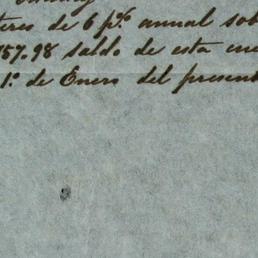 teres de 6 p% annual sob
157.98 saldo de esta cue
1º de Enero del present